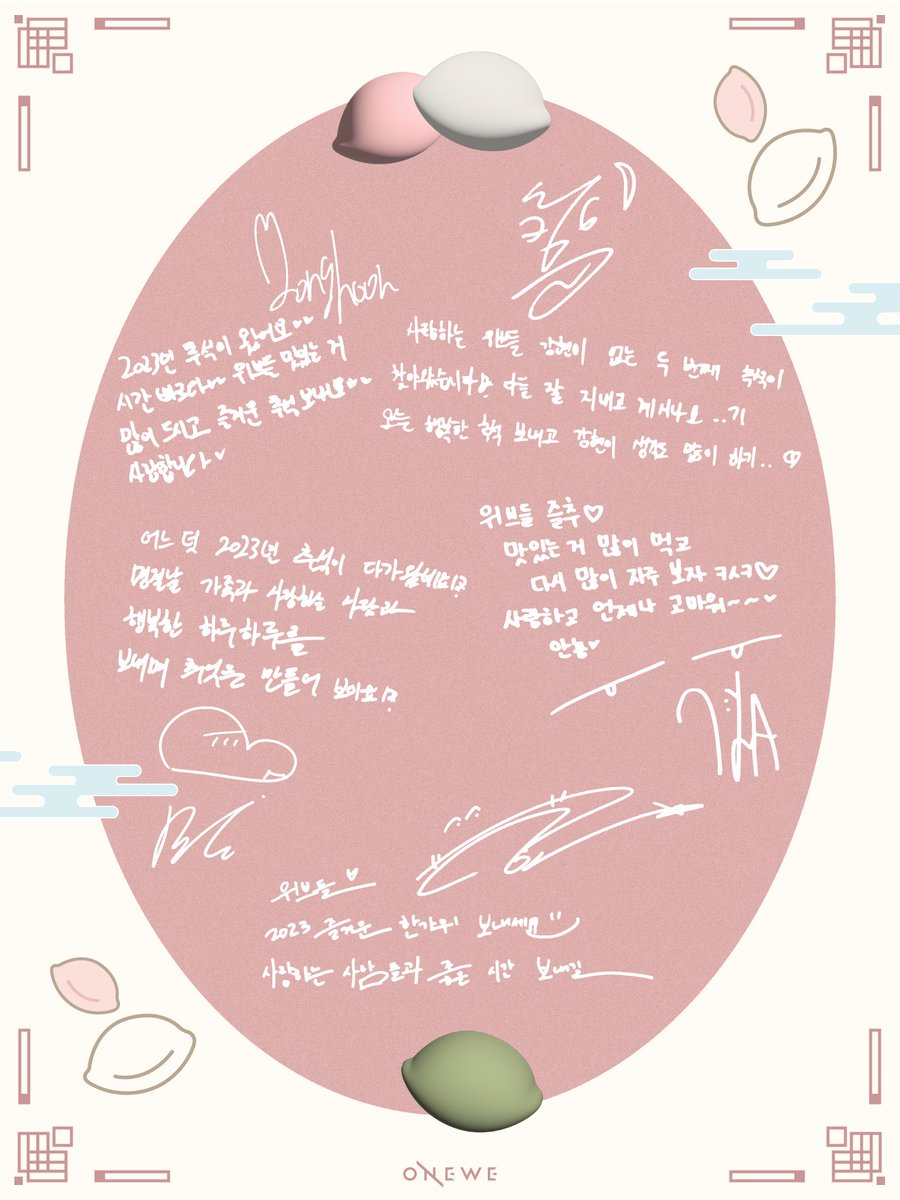 Yonghoon
2023년 추석이 왔어요
시간 빠르다~ 위브들 맛있는 거
많이 드시고 즐거운 추석 보내요
사랑합니다
사랑하는 위브들 강현이 없는 두 번째 추석이
찾아왔습니다 다들 잘 지내고 계시나요..?
오늘 행복한 추석 보내고 강현이 생각도 많이 하기..
어느 덧 2023년 추석이 다가왔네요!?
명절날 가족과 사랑하는 사람과
행복한 하루하루를
보내며 추억을 만들어 보아요!?
위브들 즐추♡
맛있는 거 많이 먹고
다시 많이 자주 보자 ㅋㅅㅋ♡
사랑하고 언제나 고마워~~♥
안뇽♥
위브들♥
2023 즐거운 한가위 보내세요
사랑하는 사람들과 좋은 시간 보내길
ONEWE